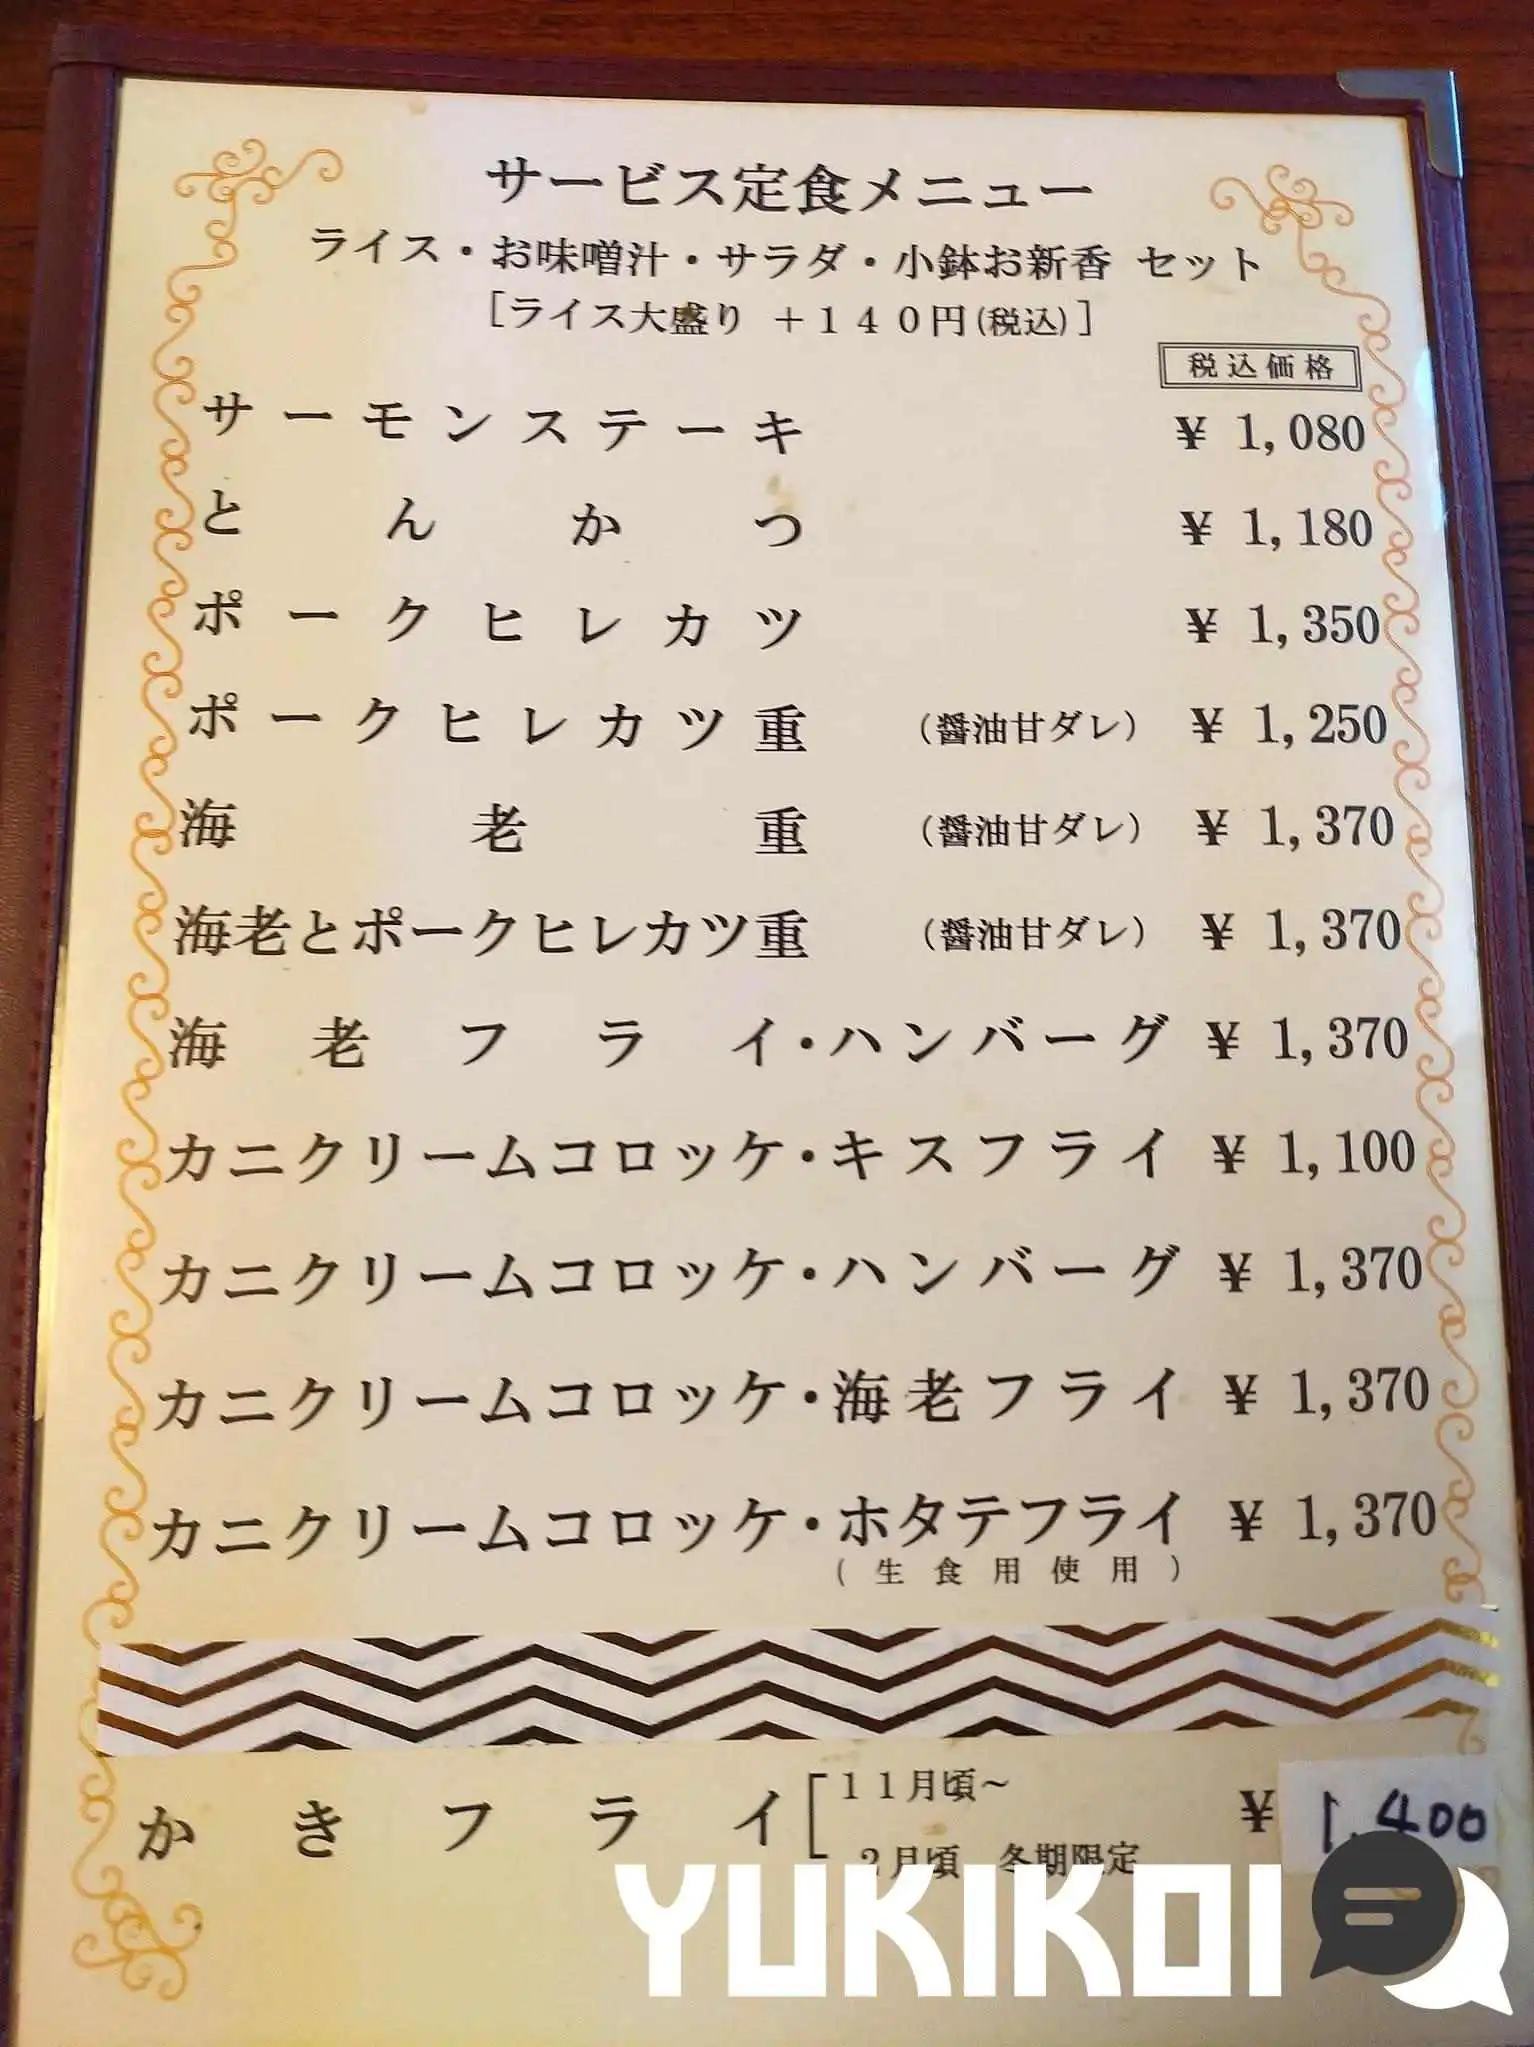 サービス定食メニュー
ライス・お味噌汁・サラダ・小鉢お新香 セット
[ライス大盛り ＋１４０円(税込)]
税込価格
サーモンステーキ ¥ 1,080
とんかつ ¥ 1,180
ポークヒレカツ ¥ 1,350
ポークヒレカツ重 (醤油甘ダレ) ¥ 1,250
海老重 (醤油甘ダレ) ¥ 1,370
海老とポークヒレカツ重 (醤油甘ダレ) ¥ 1,370
海老フライ・ハンバーグ ¥ 1,370
カニクリームコロッケ・キスフライ ¥ 1,100
カニクリームコロッケ・ハンバーグ ¥ 1,370
カニクリームコロッケ・海老フライ ¥ 1,370
カニクリームコロッケ・ホタテフライ ¥ 1,370
(生食用使用)
かきフライ [１１月頃～ ¥ 1,400
２月頃 冬期限定
YUKIKOI